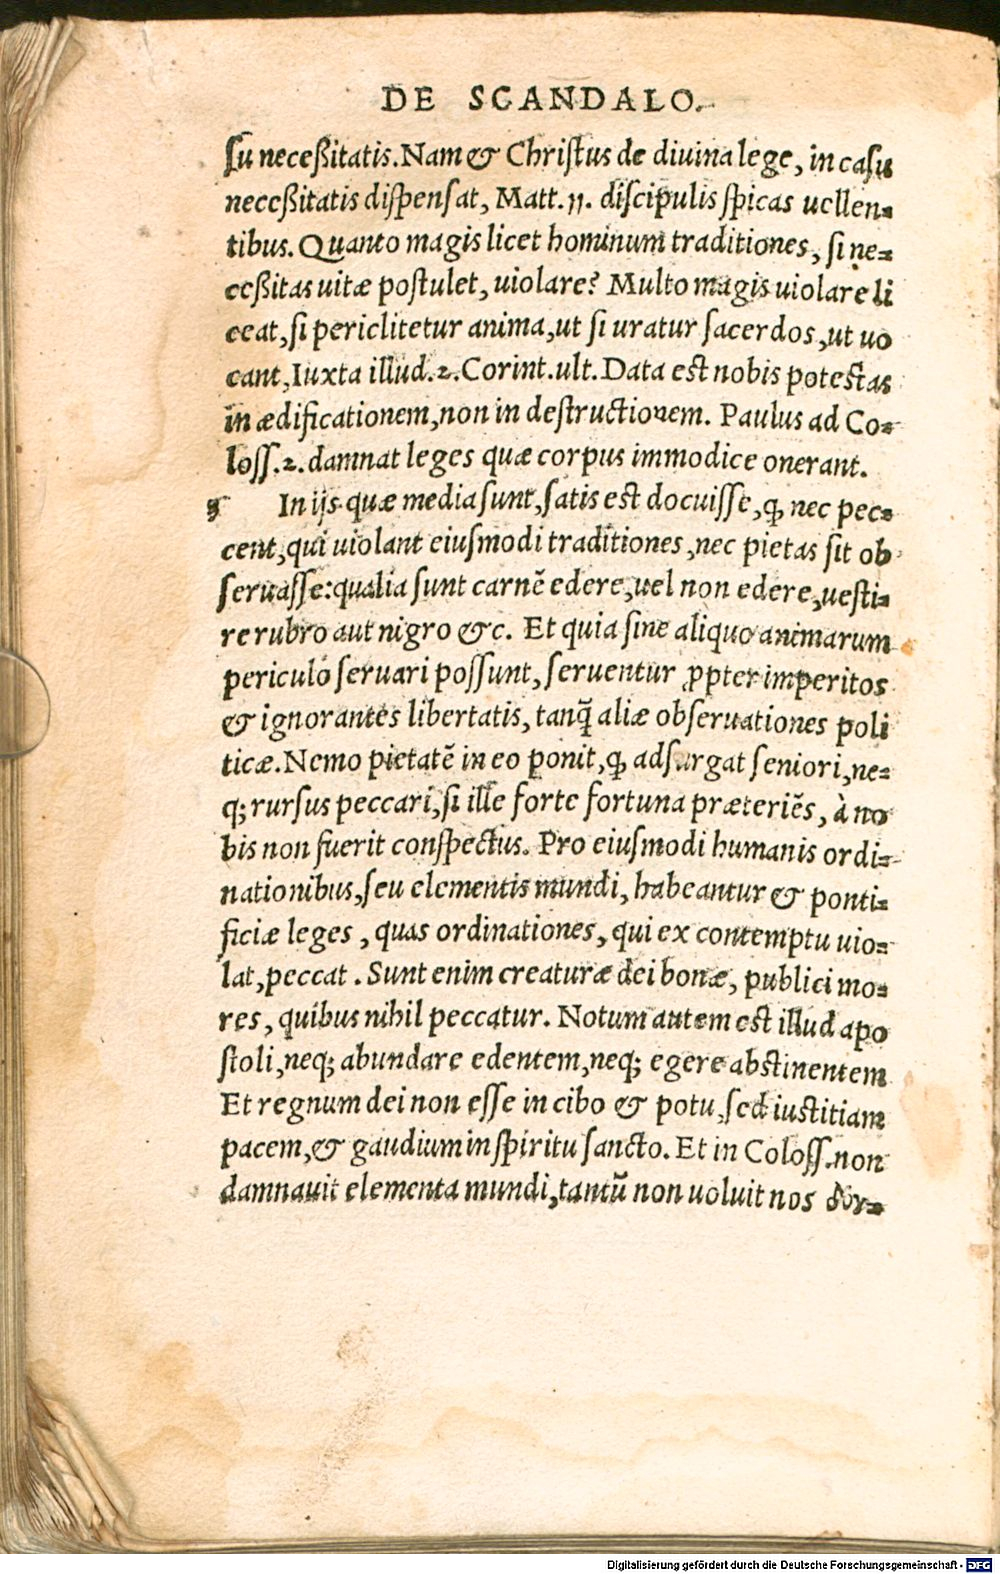 DE SCANDALO.
su neceßitatis. Nam & Christus de diuina lege, in casu
neceßitatis dispensat, Matt. 11. discipulis spicas uellen-
tibus. Quanto magis licet hominum traditiones, si ne-
ceßitas uitæ postulet, uiolare? Multo magis uiolare li
ceat, si periclitetur anima, ut si uratur sacerdos, ut uo
cant, Iuxta illud. 2. Corint. ult. Data est nobis potestas
in ædificationem, non in destructionem. Paulus ad Co-
loss. 2. damnat leges quæ corpus immodice onerant.
In ijs quæ media sunt, satis est docuisse, ꝙ nec pec-
cent, qui uiolant eiusmodi traditiones, nec pietas sit ob
seruasse: qualia sunt carnē edere, uel non edere, uesti-
re rubro aut nigro &c. Et quia sine aliquo animarum
periculo seruari possunt, seruentur ꝓpter imperitos
& ignorantes libertatis, tanq̃ aliæ obseruationes poli
ticæ. Nemo pietatē in eo ponit, ꝙ adsurgat seniori, ne-
q; rursus peccari, si ille forte fortuna præteriēs, à no
bis non fuerit conspectus. Pro eiusmodi humanis ordi-
nationibus, seu elementis mundi, habeantur & ponti-
ficiæ leges, quas ordinationes, qui ex contemptu uio-
lat, peccat. Sunt enim creaturæ dei bonæ, publici mo-
res, quibus nihil peccatur. Notum autem est illud apo
stoli, neq; abundare edentem, neq; egere abstinentem
Et regnum dei non esse in cibo & potu, sed iustitiam
pacem, & gaudium in spiritu sancto. Et in Coloss. non
damnauit elementa mundi, tantū non uoluit nos
Digitalisierung gefördert durch die Deutsche Forschungsgemeinschaft - DFG